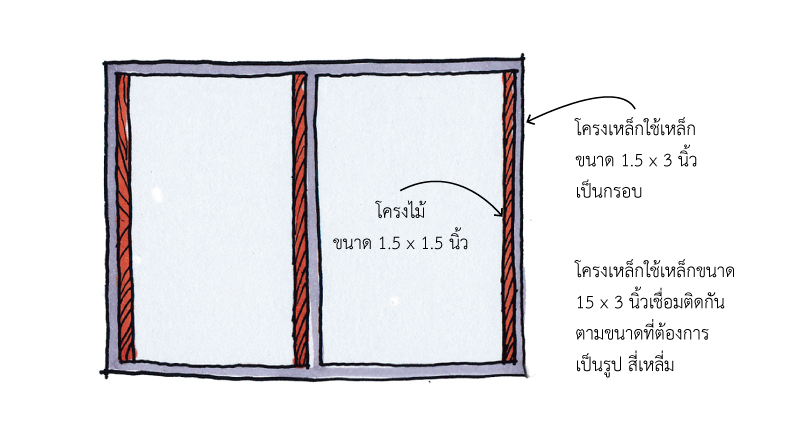 โครงเหล็กใช้เหล็ก
ขนาด 1.5 x 3 นิ้ว
เป็นกรอบ
โครงไม้
ขนาด 1.5 x 1.5 นิ้ว
โครงเหล็กใช้เหล็กขนาด
15 x 3 นิ้วเชื่อมติดกัน
ตามขนาดที่ต้องการ
เป็นรูป สี่เหลื่ม